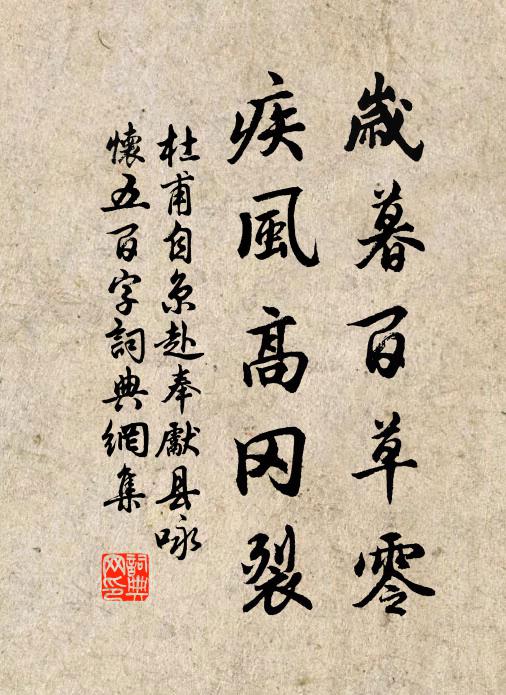 歲暮百草零
疾風高冈裂
杜甫自京赴奉獻县咏
懷五百字詞典網集
詞典
网印